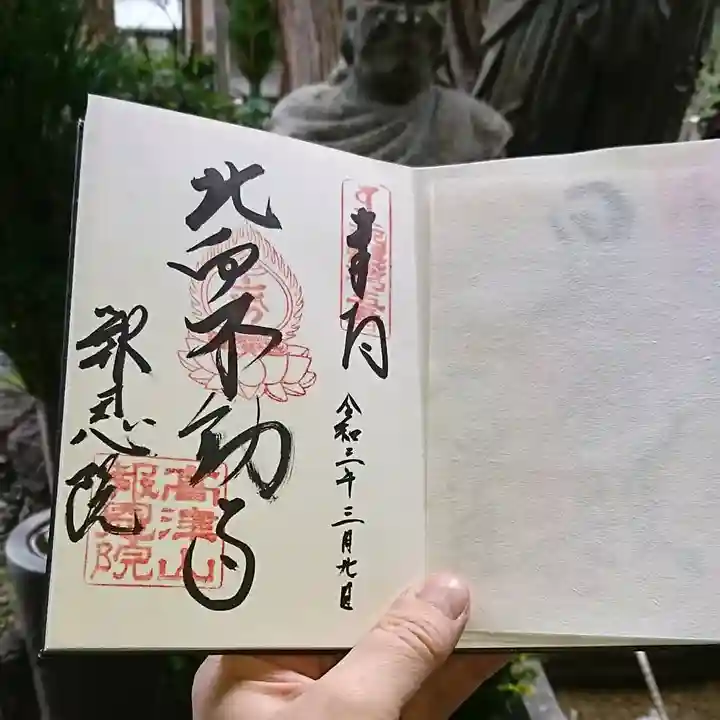 奉拝
令和三年三月九日
北向不動尊
報恩院
高津山
報恩院